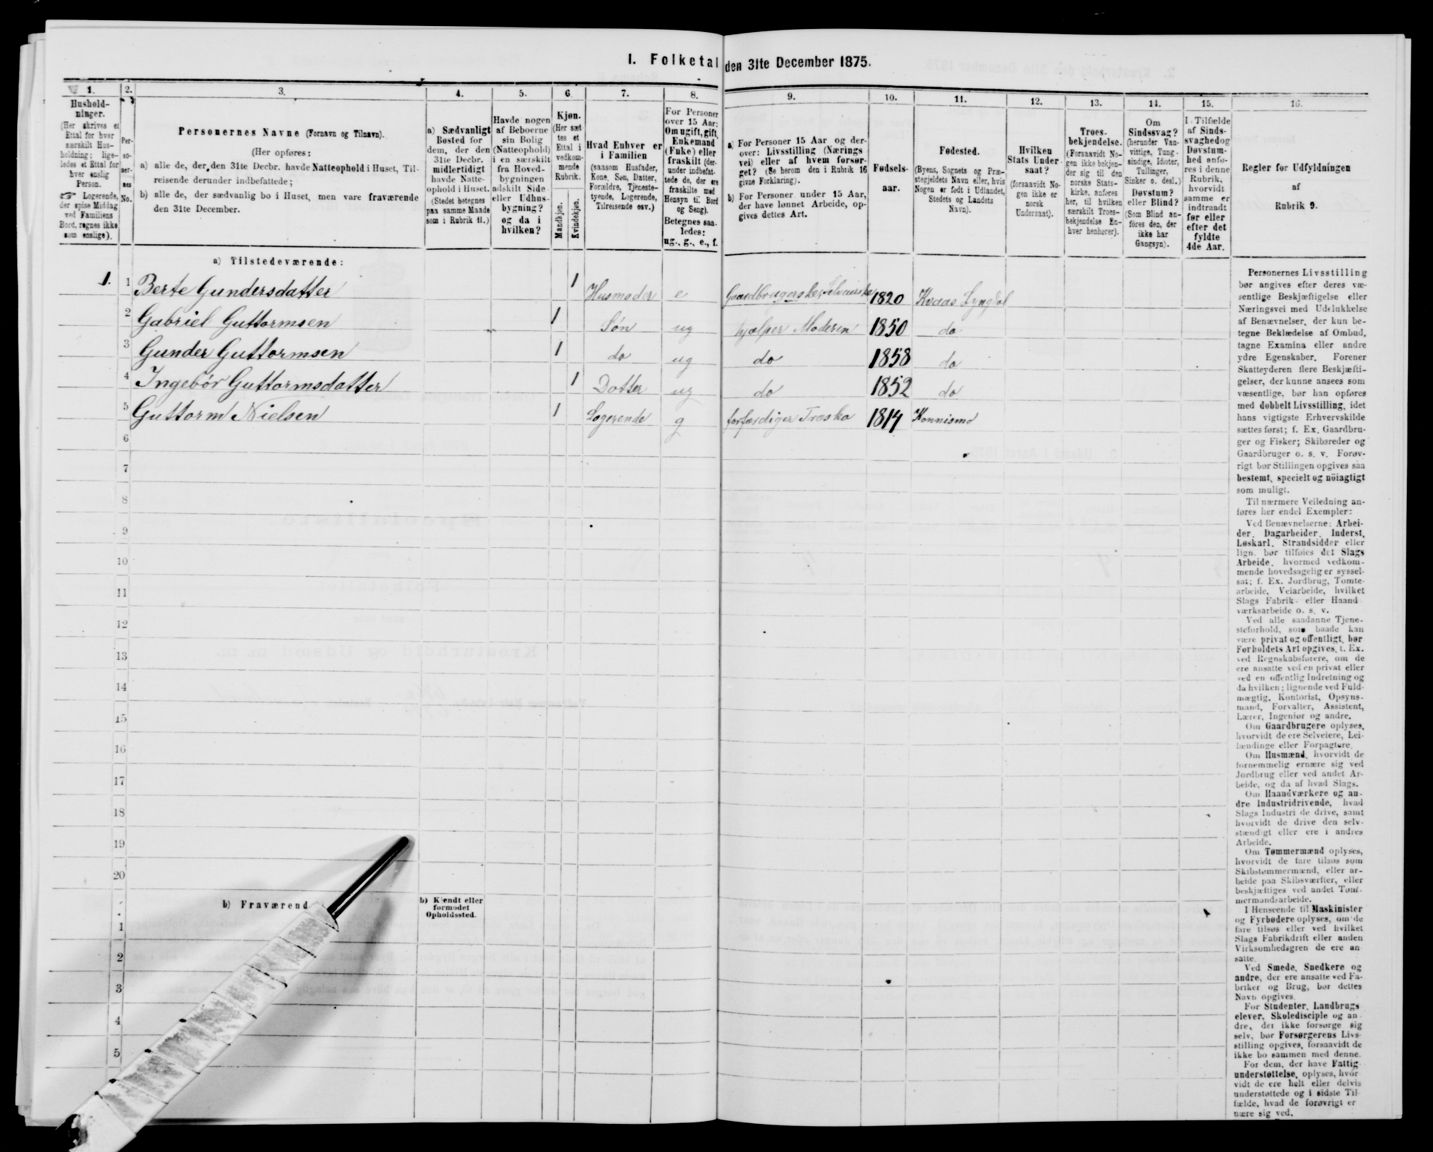 1. Folketal den 31te December 1875.
1.
Hushold-
ninger.
(Her skrives et
Ettal for hver
særskilt Hus-
holdning; lige-
ledes et Ettal for
hver enslig
Person.
☞ Logerende,
der spise Middag
ved Familiens
Bord, regnes ikke
som enslige).
2.
Per-
so-
ner-
nes
No.
3.
Personernes Navne (Fornavn og Tilnavn).
(Her opføres:
a) alle de, der den 31te Decbr. havde Natteophold i Huset, Til-
reisende derunder indbefattede;
b) alle de, der sædvanlig bo i Huset, men vare fraværende
den 31te December.
4.
a) Sædvanligt
Bosted for
dem, der den
31te Decbr.
midlertidigt
havde Natte-
ophold i Huset.
(Stedet betegnes
paa samme Maade
som i Rubrik 11.)
5.
Havde nogen
af Beboerne
sin Bolig
(Natteophold)
i en særskilt
fra Hoved-
bygningen
adskilt Side-
eller Udhus-
bygning?
og da i
hvilken?
6.
Kjøn.
(Her sæt-
tes et
Ettal i
vedkom-
mende
Rubrik.
Mandkjøn.
Kvindekjøn.
7.
Hvad Enhver er
i Familien
(saasom Husfader,
Kone, Søn, Datter,
Forældre, Tjeneste-
tyende, Logerende,
Tilreisende osv.)
8.
For Personer
over 15 Aar:
Om ugift, gift,
Enkemand
(Enke) eller
fraskilt (der-
under indbefat-
tede de, der ere
fraskilte med
Hensyn til Bord
og Seng).
Betegnes saa-
ledes:
ug., g., e., f.
9.
a) For Personer 15 Aar og der-
over: Livsstilling (Nærings
vei) eller af hvem forsør-
get? (Se herom den i Rubrik 16
givne Forklaring).
b) For Personer under 15 Aar,
der have lønnet Arbeide, op-
gives dettes Art.
10.
Fødsels-
aar.
11.
Fødested.
(Byens, Sognets og Præ-
stegjeldets Navn eller, hvis
Nogen er født i Udlandet,
Stedets og Landets
Navn).
12.
Hvilken
Stats Under-
saat?
(forsaavidt No-
gen ikke er
norsk
Undersaat).
13.
Troes-
bekjendelse.
(Forsaavidt No-
gen ikke bekjen-
der sig til den
norske Stats-
kirke, anføres
her, til hvilken
særskilt Troes-
bekjendelse En-
hver henhører).
14.
Om
Sindssvag?
(herunder Van-
vittige, Tung-
sindige, Idioter,
Tullinger,
Sinker o. desl.)
Døvstum?
eller Blind?
(Som Blind an-
føres den, der
ikke har
Gangsyn).
15.
I Tilfælde
af Sinds-
svaghed og
Døvstum-
hed anfø-
res i denne
Rubrik,
hvorvidt
samme er
indtraadt
før eller
efter det
fyldte
4de Aar.
16.
Regler for Udfyldningen
af
Rubrik 9.
a) Tilstedeværende:
1. 1 Berte Gundersdatter 1 Husmoder e Gaardbrugerske Selveierske 1820 Kvaas Lyngdal
2 Gabriel Guttormsen 1 Søn ug hjælper Moderen 1850 do
3 Gunder Guttormsen 1 do ug do 1858 do
4 Ingebor Guttormsdatter 1 Datter ug do 1852 do
5 Guttorm Nielsen 1 Logerende g forfærdiger Træsko 1814 Konnismo
6
7
8
9
10
11
12
13
14
15
16
17
18
19
20
b) Fraværend
b) Kjendt eller
formodet
Opholdssted.
1
2
3
4
5
Personernes Livsstilling
bør angives efter deres væ-
sentlige Beskjæftigelse eller
Næringsvei med Udelukkelse
af Benævnelser, der kun be-
tegne Beklædelse af Ombud,
tagne Examina eller andre
ydre Egenskaber. Forener
Skatteyderen flere Beskjæfti-
gelser, der kunne ansees som
væsentlige, bør han opføres
med dobbelt Livsstilling, idet
hans vigtigste Erhvervskilde
sættes først; f. Ex. Gaardbru-
ger og Fisker; Skibsreder og
Gaardbruger o. s. v. Forøv-
rigt bør Stillingen opgives saa
bestemt, specielt og nøiagtigt
som muligt.
Til nærmere Veiledning an-
føres her endel Exempler:
Ved Benævnelserne: Arbei-
der, Dagarbeider, Inderst,
Løskarl, Strandsidder eller
lign. bør tilføies det Slags
Arbeide, hvormed vedkom-
mende hovedsagelig er syssel-
sat; f. Ex. Jordbrug, Tomte-
arbeide, Veiarbeide, hvilket
Slags Fabrik- eller Haand
værksarbeide o. s. v.
Ved alle saadanne Tjene-
steforhold, som baade kan
være privat og offentligt, bør
Forholdets Art opgives, f. Ex.
ved Regnskabsførere, om de
ere ansatte ved en privat eller
ved en offentlig Indretning og
da hvilken; lignende ved Fuld-
mægtig, Kontorist, Opsyns-
mand, Forvalter, Assistent,
Lærer, Ingeniør og andre.
Om Gaardbrugere oplyses,
hvorvidt de ere Selveiere, Lei-
lændinge eller Forpagtere.
Om Husmænd, hvorvidt de
fornemmelig ernære sig ved
Jordbrug eller ved andet Ar-
beide, og da af hvad Slags.
Om Haandværkere og an-
dre Industridrivende, hvad
Slags Industri de drive, samt
hvorvidt de drive den selv-
stændigt eller ere i andres
Arbeide.
Om Tømmermænd oplyses,
hvorvidt de fare tilsøs som
Skibstømmermænd, eller ar-
beide paa Skibsværfter, eller
beskjæftiges ved andet Tøm-
mermandsarbeide.
I Henseende til Maskinister
og Fyrbødere oplyses, om de
fare tilsøs eller ved hvilket
Slags Fabrikdrift eller anden
Virksomhedsgren de ere an
satte.
Ved Smede, Snedkere og
andre, der ere ansatte ved Fa-
briker og Brug, bør dettes
Navn opgives.
For Studenter, Landbrugs
elever, Skoledisciple og an-
dre, der ikke forsørge sig
selv, bør Forsørgerens Livs-
stilling opgives, forsaavidt de
ikke bo sammen med denne.
For dem, der have Fattig-
understøttelse, oplyses, hvor-
vidt de ere helt eller delvis
understøttede og i sidste Til-
fælde, hvad de forøvrigt er
nære sig ved.